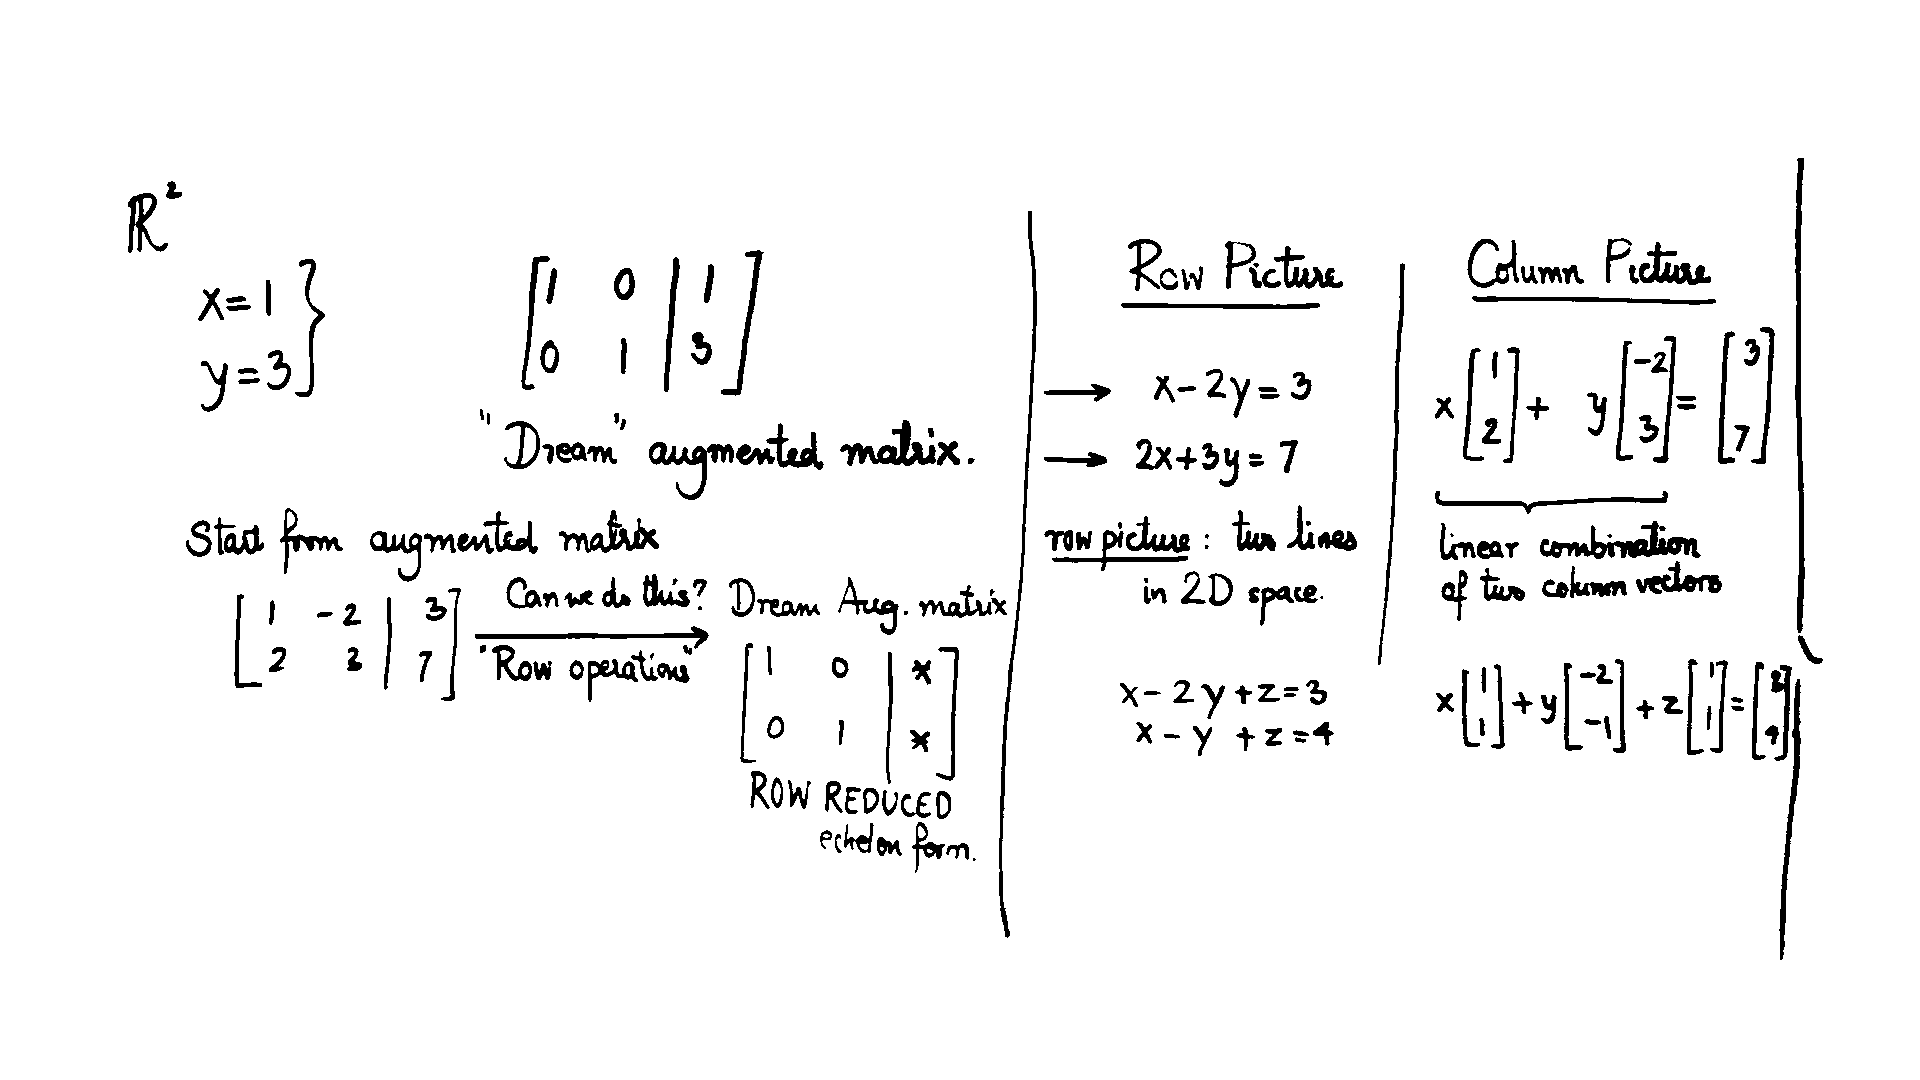 ℝ²
x = 1
y = 3 }
[ 1 0 | 1 ]
[ 0 1 | 3 ]
"Dream" augmented matrix.
Start from augmented matrix
[ 1 -2 | 3 ]
[ 2 3 | 7 ]
Can we do this?
"Row operations"
Dream Aug. matrix
[ 1 0 | * ]
[ 0 1 | * ]
ROW REDUCED
echelon form.
Row Picture
→ x - 2y = 3
→ 2x + 3y = 7
row picture : two lines
in 2D space.
x - 2y + z = 3
x - y + z = 4
Column Picture
x [1 2] + y [-2 3] = [3 7]
linear combination
of two column vectors
x [1 1] + y [-2 -1] + z [1 1] = [3 4]